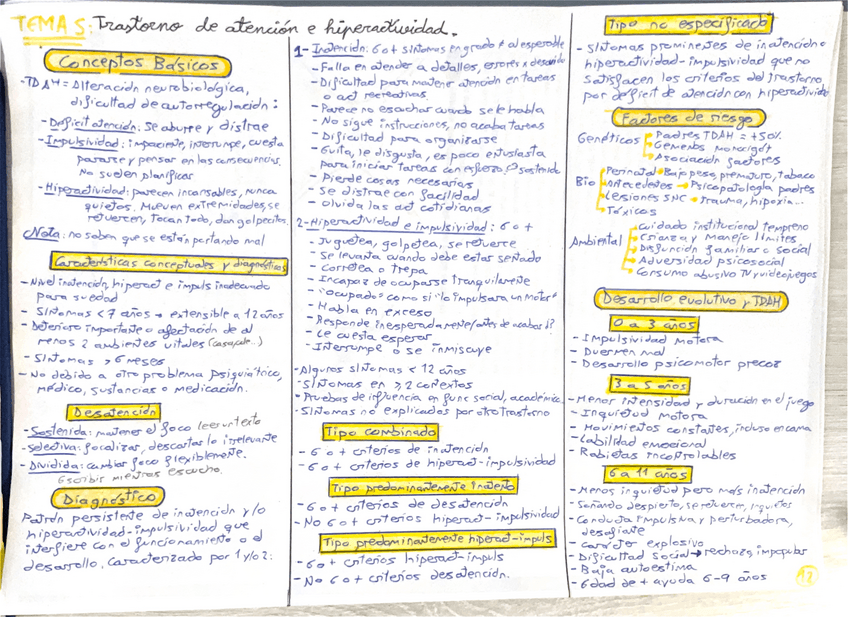 TEMA 5: Trastorno de atención e hiperactividad.
Conceptos Básicos
- TDAH = Alteración neurobiológica,
dificultad de autorregulación:
- Déficit atención: Se aburre y distrae
- Impulsividad: impaciente, interrumpe, cuesta
pararse y pensar en las consecuencias.
No suelen planificar
- Hiperactividad: parecen incansables, nunca
quietos. Mueven extremidades, se
retuercen, tocan todo, dan golpecitos.
Nota: no saben que se están portando mal
Características conceptuales y diagnósticas
- Nivel inatención, hiperact e impuls inadecuado
para su edad
- Síntomas < 7 años → extensible a 12 años
- Deterioro importante o afectación de al
menos 2 ambientes vitales (casa, cole..)
- Síntomas > 6 meses
- No debido a otro problema psiquiátrico,
médico, sustancias o medicación.
Desatención
- Sostenida: mantener el foco leer un texto
- Selectiva: focalizar, descartar lo irrelevante
- Dividida: cambiar foco flexiblemente.
Escribir mientras escucho.
Diagnóstico
Patrón persistente de inatención y/o
hiperactividad-impulsividad que
interfiere con el funcionamiento o el
desarrollo. Caracterizado por 1 y/o 2:
1- Inatención: 6 o + síntomas en grado ≠ al esperable
- Fallo en atender a detalles, errores x descuido
- Dificultad para mantener atención en tareas
o act recreativas
- Parece no escuchar cuando se le habla
- No sigue instrucciones, no acaba tareas
- Dificultad para organizarse
- Evita, le disgusta, es poco entusiasta
para iniciar tareas con esfuerzo sostenido
- Pierde cosas necesarias
- Se distrae con facilidad
- Olvida las act cotidianas
2- Hiperactividad e impulsividad: 6 o +
- Juguetea, golpetea, se retuerce
- Se levanta cuando debe estar sentado
- Corretea o trepa
- Incapaz de ocuparse tranquilamente
- "Ocupado" como si "lo impulsara un motor"
- Habla en exceso
- Responde inesperadamente/antes de acabar ¿?
- Le cuesta esperar
- Interrumpe o se inmiscuye
- Algunos síntomas < 12 años
- Síntomas en ≥ 2 contextos
- Pruebas de influencia en func social, académico..
- Síntomas no explicados por otro trastorno
Tipo combinado
- 6 o + criterios de inatención
- 6 o + criterios de hiperact-impulsividad
Tipo predominantemente inatento
- 6 o + criterios de desatención
- No 6 o + criterios hiperact-impulsividad
Tipo predominantemente hiperact-impuls
- 6 o + criterios hiperact-impuls
- No 6 o + criterios desatención.
Tipo no especificado
- Síntomas prominentes de inatención o
hiperactividad-impulsividad que no
satisfacen los criterios del trastorno
por déficit de atención con hiperactividad
Factores de riesgo
Genéticos
Padres TDAH = +50%
Gemelos monocigót
Asociación factores
Bio
Perinatal → Bajo peso, prematuro, tabaco
Antecedentes → Psicopatología padres
Lesiones SNC → Trauma, hipoxia...
Tóxicos
Ambiental
Cuidado institucional temprano
Crianza y manejo límites
Disfunción familiar o social
Adversidad psicosocial
Consumo abusivo TV y videojuegos
Desarrollo evolutivo y TDAH
0 a 3 años
- Impulsividad motora
- Duermen mal
- Desarrollo psicomotor precoz
3 a 5 años
- Menor intensidad y duración en el juego
- Inquietud motora
- Movimientos constantes, incluso en cama
- Labilidad emocional
- Rabietas incontrolables
6 a 11 años
- Menos inquietud pero más inatención
- Soñando despierto, se retuercen, inquietos
- Conducta impulsiva y perturbadora,
desafiante
- Carácter explosivo
- Dificultad social → rechazo, impopular
- Baja autoestima
- Edad de + ayuda 6-9 años
12